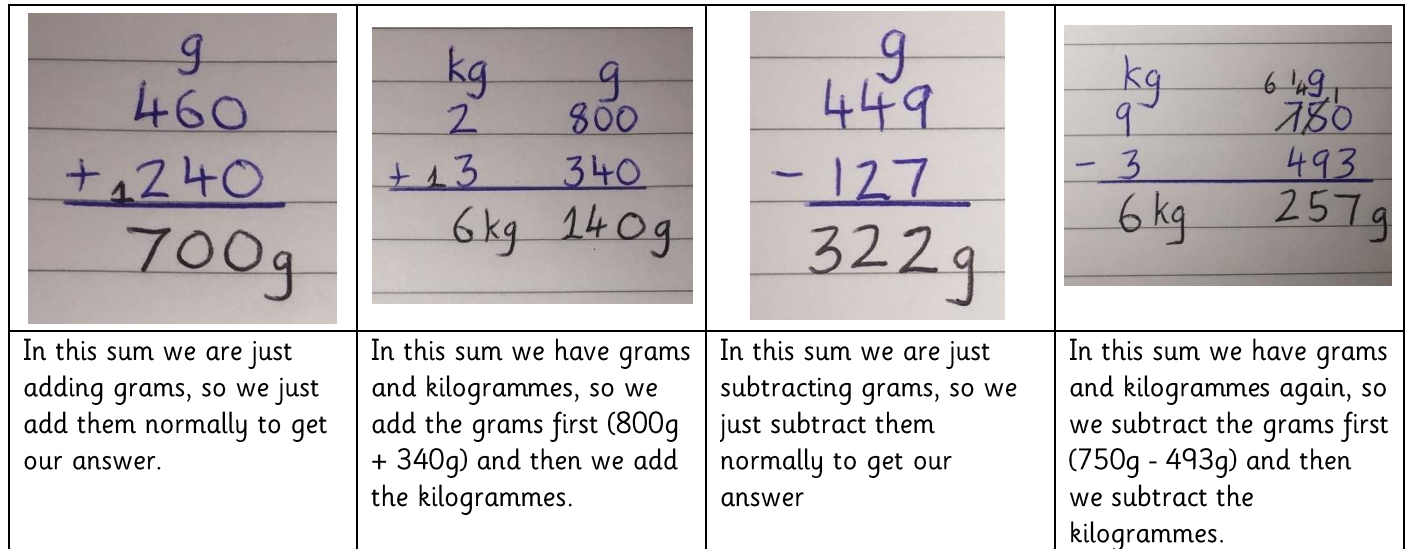 g
460
+ 1240
700g
kg g
2 800
+ 13 340
6kg 140g
g
449
- 127
322g
kg 6 14g 1
9 750
- 3 493
6kg 257g
In this sum we are just
adding grams, so we just
add them normally to get
our answer.
In this sum we have grams
and kilogrammes, so we
add the grams first (800g
+ 340g) and then we add
the kilogrammes.
In this sum we are just
subtracting grams, so we
just subtract them
normally to get our
answer
In this sum we have grams
and kilogrammes again, so
we subtract the grams first
(750g - 493g) and then
we subtract the
kilogrammes.